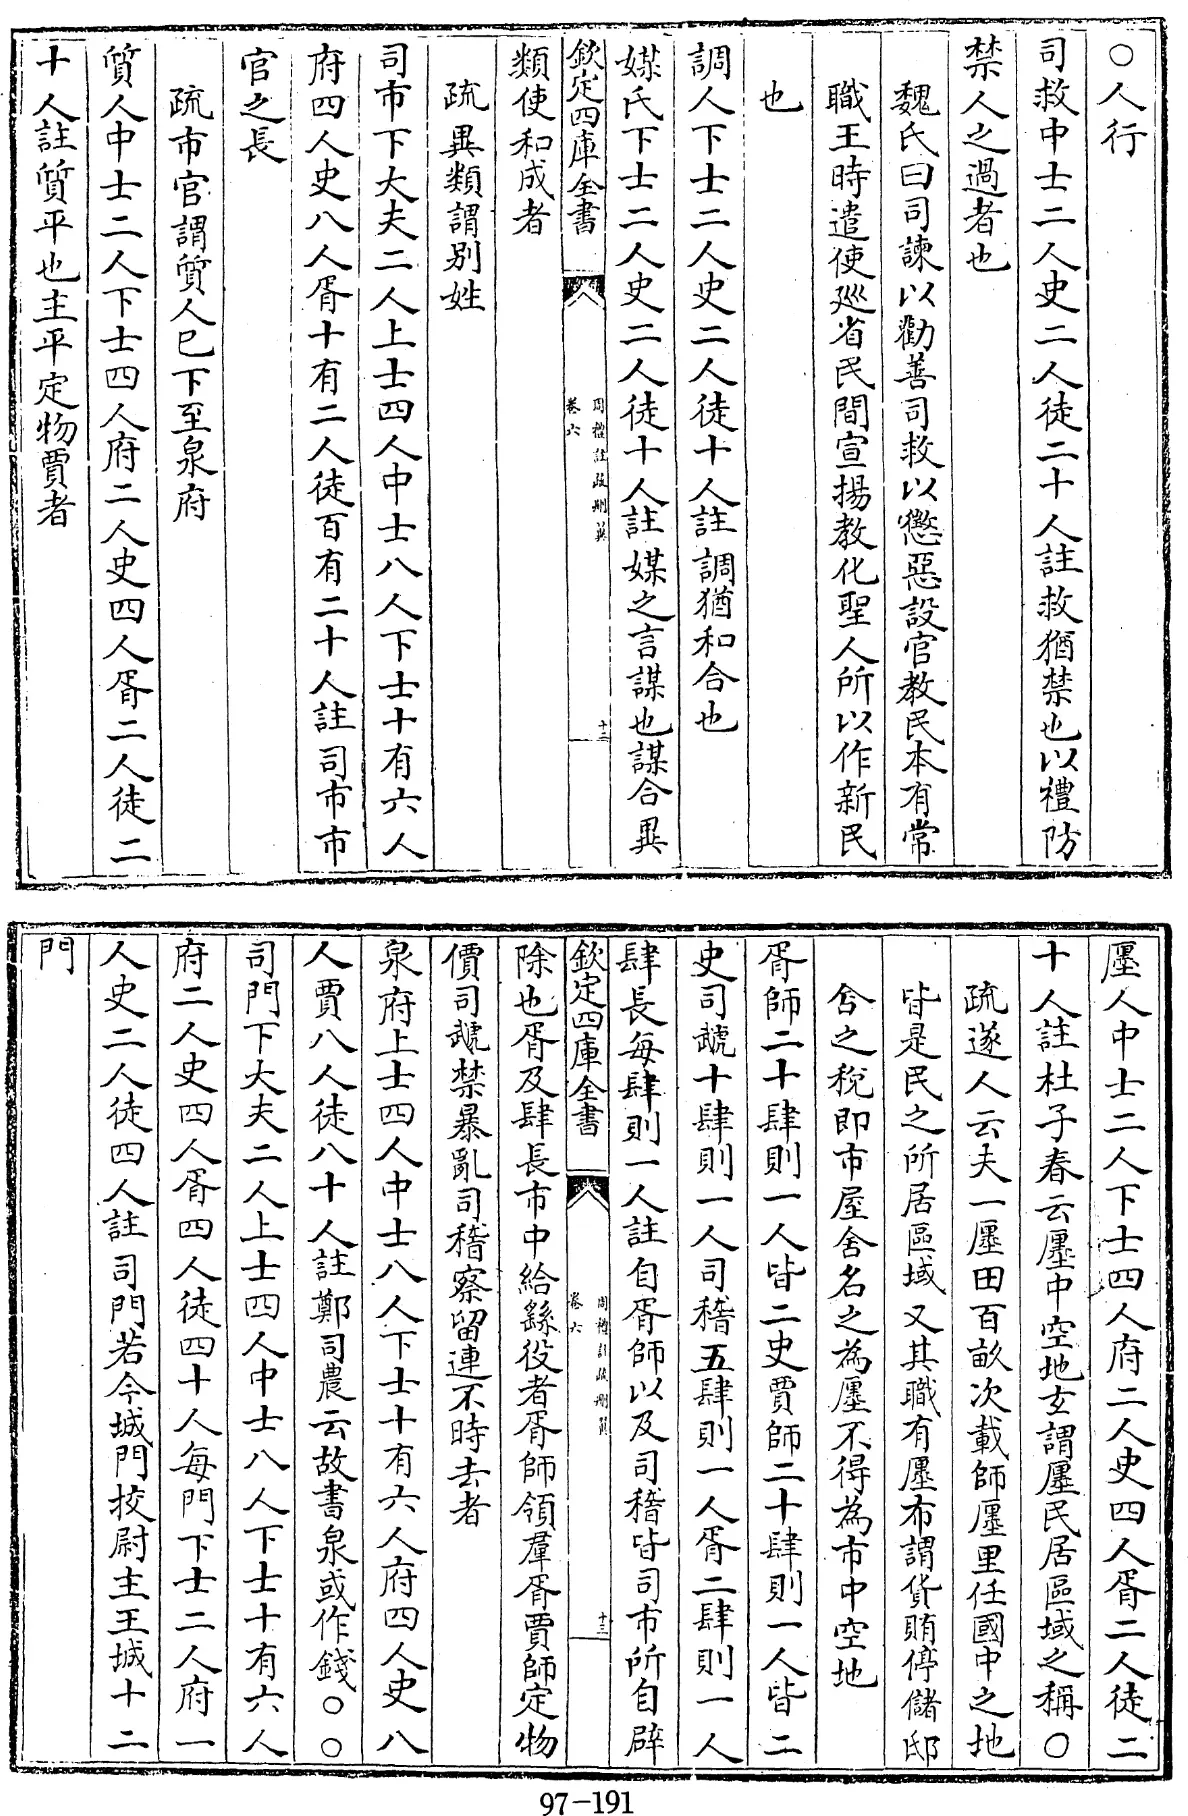 〇人行
司救中士二人史二人徒二十人註救猶禁也以禮防
禁人之過者也
魏氏曰司諫以勸善司救以懲惡設官教民本有常
職王時遣使廵省民間宣揚教化聖人所以作新民
也
調人下士二人史二人徒十人註調猶和合也
媒氏下士二人史二人徒十人註媒之言謀也謀合異
欽定四庫全書
周禮註疏刪翼
卷六
十二
類使和成者
疏異類謂别姓
司市下大夫二人上士四人中士八人下士十有六人
府四人史八人胥十有二人徒百有二十人註司市市
官之長
疏市官謂質人已下至泉府
質人中士二人下士四人府二人史四人胥二人徒二
十人註質平也主平定物賈者
廛人中士二人下士四人府二人史四人胥二人徒二
十人註杜子春云廛中空地玄謂廛民居區域之稱〇
疏遂人云夫一廛田百畝次載師廛里任國中之地
皆是民之所居區域又其職有廛布謂貨賄停儲邸
舍之稅即市屋舍名之為廛不得為市中空地
胥師二十肆則一人皆二史賈師二十肆則一人皆二
史司虣十肆則一人司稽五肆則一人胥二肆則一人
肆長每肆則一人註自胥師以及司稽皆司市所自辟
欽定四庫全書
周禮註疏刪翼
卷六
十三
除也胥及肆長市中給繇役者胥師領羣胥賈師定物
價司虣禁暴亂司稽察留連不時去者
泉府上士四人中士八人下士十有六人府四人史八
人賈八人徒八十人註鄭司農云故書泉或作錢〇〇
司門下大夫二人上士四人中士八人下士十有六人
府二人史四人胥四人徒四十人每門下士二人府一
人史二人徒四人註司門若今城門挍尉主王城十二
門
97-191